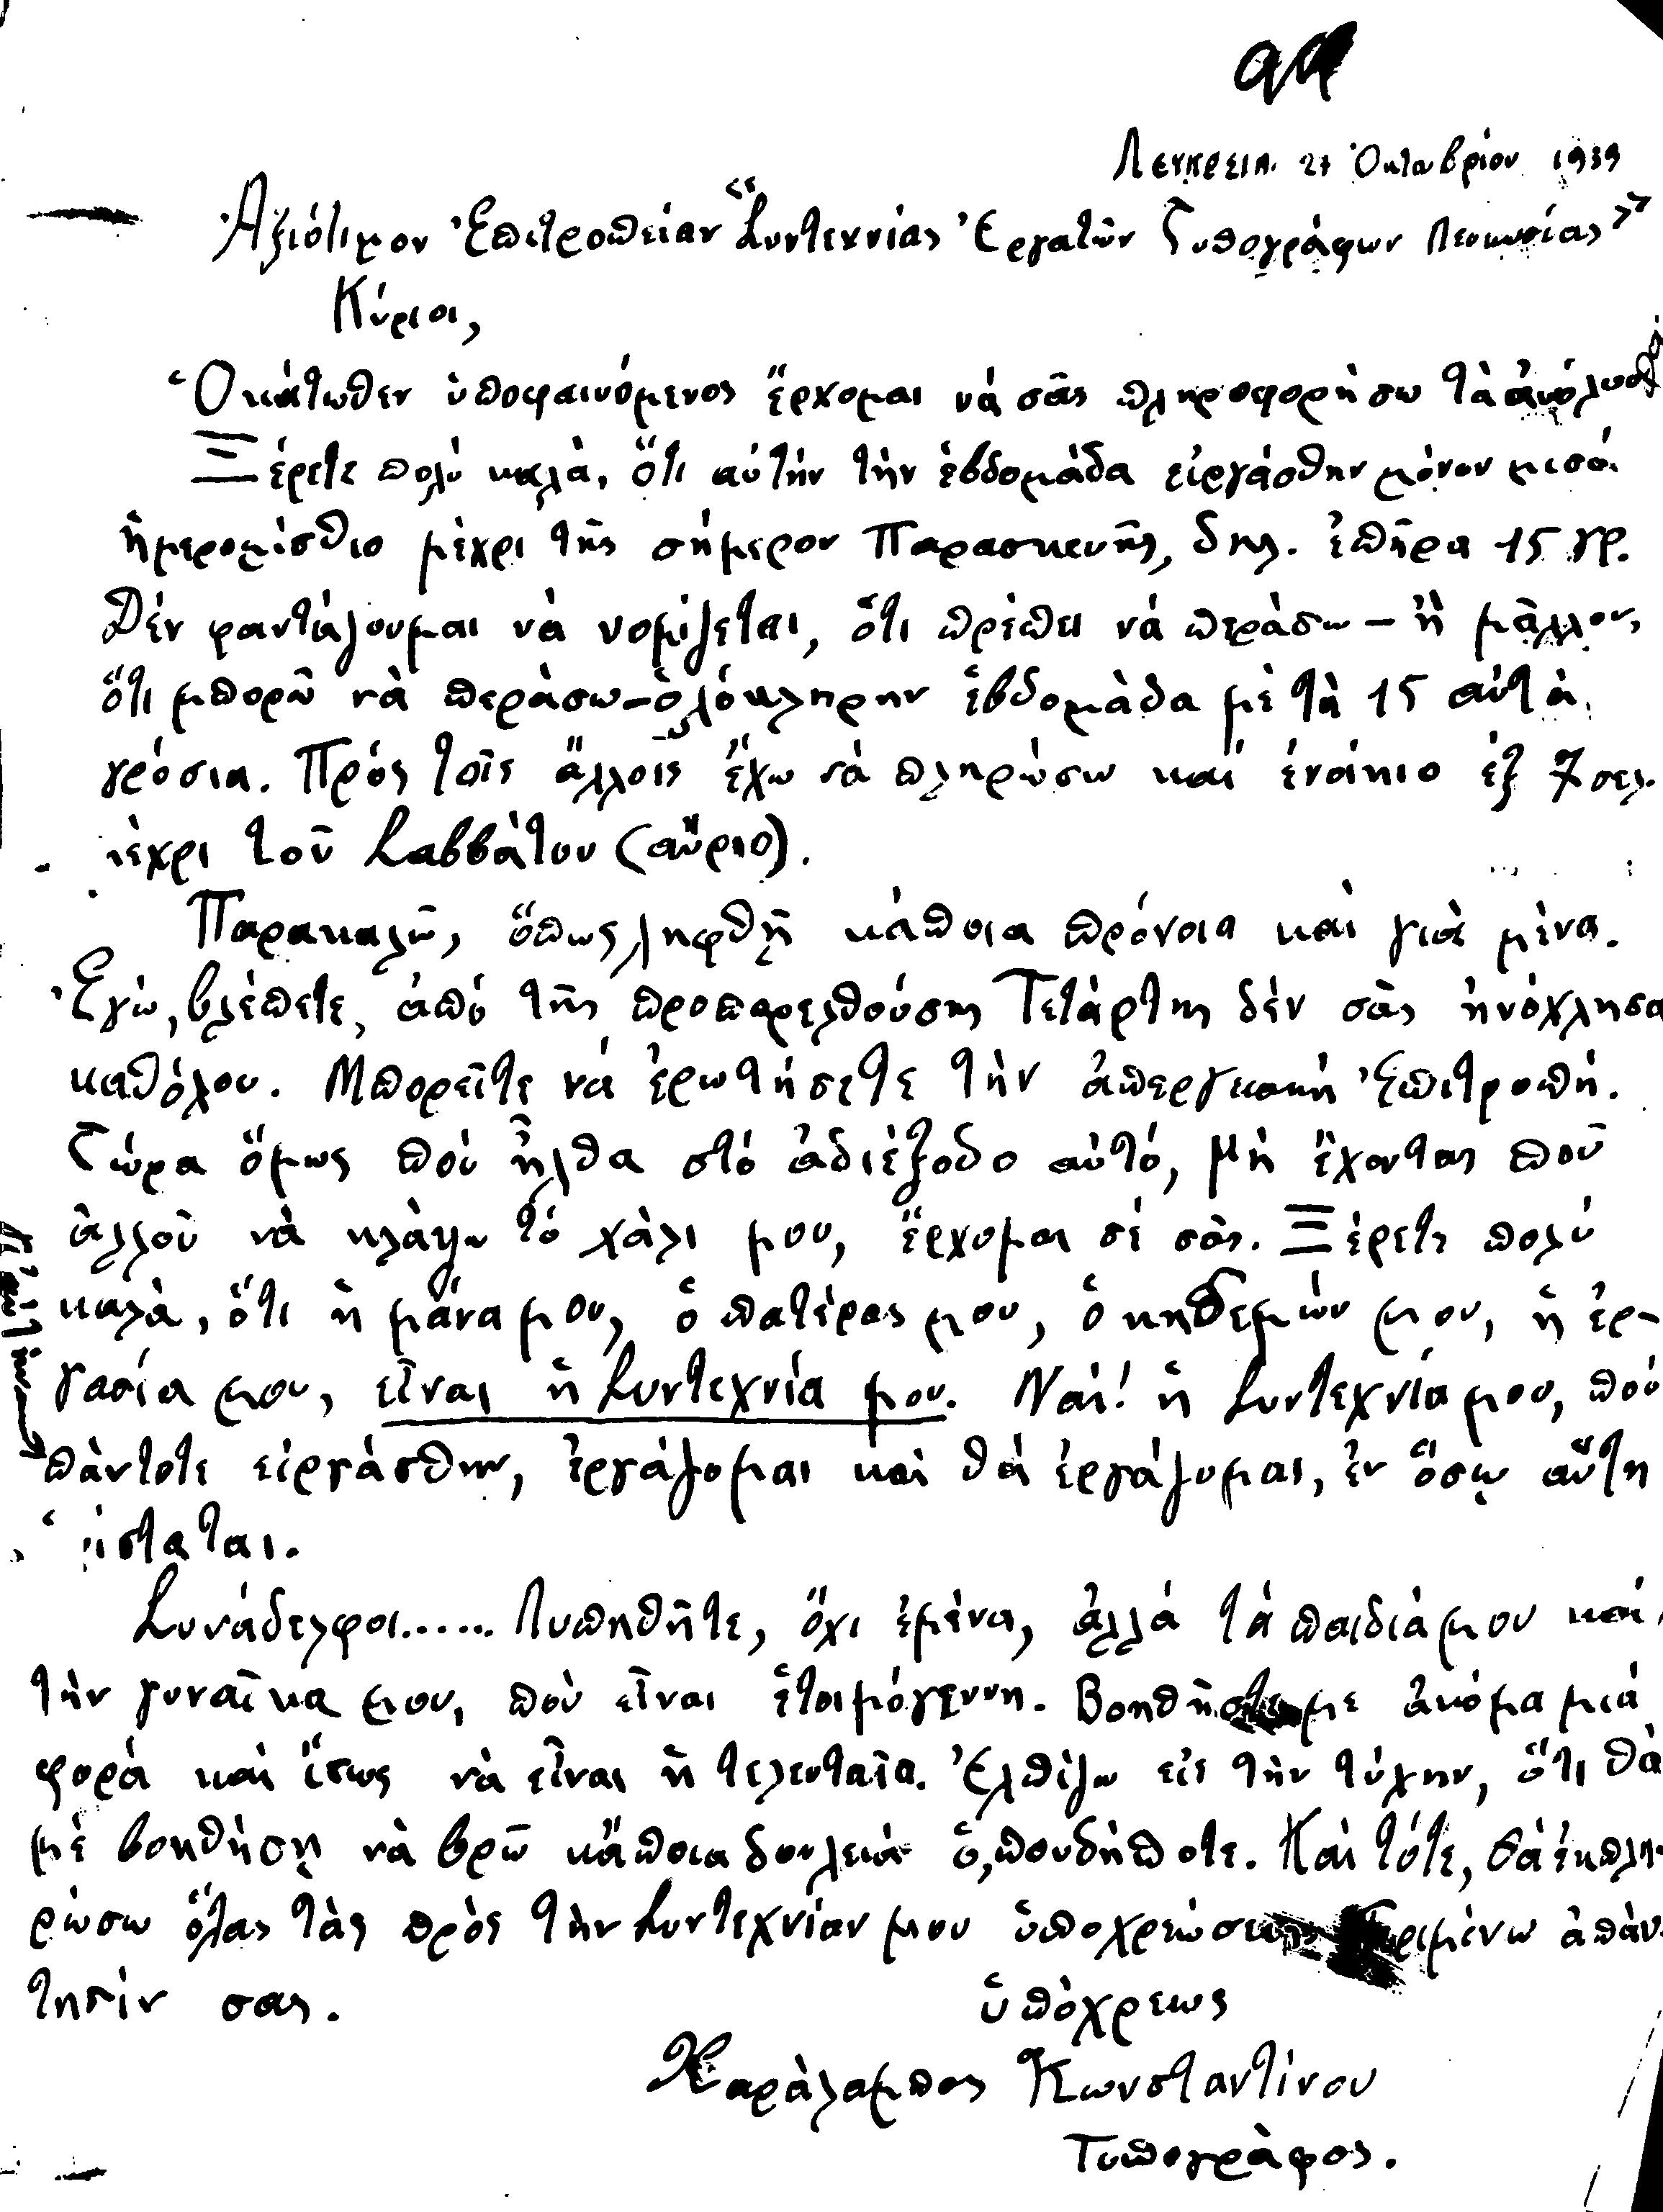 Λευκωσία. 27 Ὀκταβρίου 1939
Ἀξιότιμον Ἐπιτροπείαν "Συντεχνίας Ἐργατῶν Τυπογράφων Λευκωσίας"
Κύριοι,
Ὁ κάτωθεν ὑποφαινόμενος ἔρχομαι νά σᾶς πληροφορήσω τὰ ἀκόλουθα
Ξέρετε πολύ καλὰ, ὅτι αὐτήν τὴν ἑβδομάδα εἰργάσθην μόνον μισό
ἡμερομίσθιο μέχρι τῆς σήμερον Παρασκευῆς, δηλ. ἐπῆρα 15 γρ.
Δέν φαντάζουμαι νὰ νομίζεται, ὅτι πρέπει νά περάσω – ἤ μᾶλλον,
ὅτι μπορῶ νὰ περάσω – ὁλόκληρην ἑβδομάδα μὲ τὰ 15 αὐτὰ
γρόσια. Πρός τοῖς ἄλλοις ἔχω νὰ πληρώσω καί ἐνοίκιο ἐξ 7 σελ.
μέχρι τοῦ Σαββάτου (αὔριο).
Παρακαλῶ, ὅπως ληφθῇ κάποια πρόνοια καὶ γιὰ μένα.
Ἐγώ, βλέπετε, ἀπό τῆς προπαρελθούσης Τετάρτης δέν σᾶς ἠνόχλησα
καθόλου. Μπορεῖτε νά ἐρωτήσετε τὴν ἀπεργιακή Ἐπιτροπή.
Τώρα ὅμως πού ἦλθα στό ἀδιέξοδο αὐτό, μή ἔχοντας ποῦ
ἀλλοῦ νὰ κλάψω τό χάλι μου, ἔρχομαι σέ σᾶς. Ξέρετε πολύ
καλὰ, ὅτι ἡ μάνα μου, ὁ πατέρας μου, ὁ κηδεμών μου, ἡ ἐρ-
γασία μου, εἶναι ἡ Συντεχνία μου. Ναί! ἡ Συντεχνία μου, πού
πάντοτε εἰργάσθην, ἐργάζομαι καὶ θά ἐργάζομαι, ἐν ὅσῳ αὕτη
ὑφίσταται.
Συνάδελφοι...... Λυπηθῆτε, ὄχι ἐμένα, ἀλλά τά παιδιά μου καί
τὴν γυναῖκα μου, πού εἶναι ἑτοιμόγεννη. Βοηθῆστε με ἀκόμα μιά
φορά καὶ ἴσως νὰ εἶναι ἡ τελευταῖα. Ἐλπίζω εἰς τὴν τύχην, ὅτι θὰ
μέ βοηθήσῃ νὰ βρῶ κάποια δουλειά ὁπουδήποτε. Καὶ τότε, θά ἐκπλη-
ρώσω ὅλας τὰς πρὸς τὴν Συντεχνίαν μου ὑποχρεώσεις Περιμένω ἀπάν-
τησίν σας.
ὑπόχρεως
Χαράλαμπος Κωνσταντίνου
Τυπογράφος.